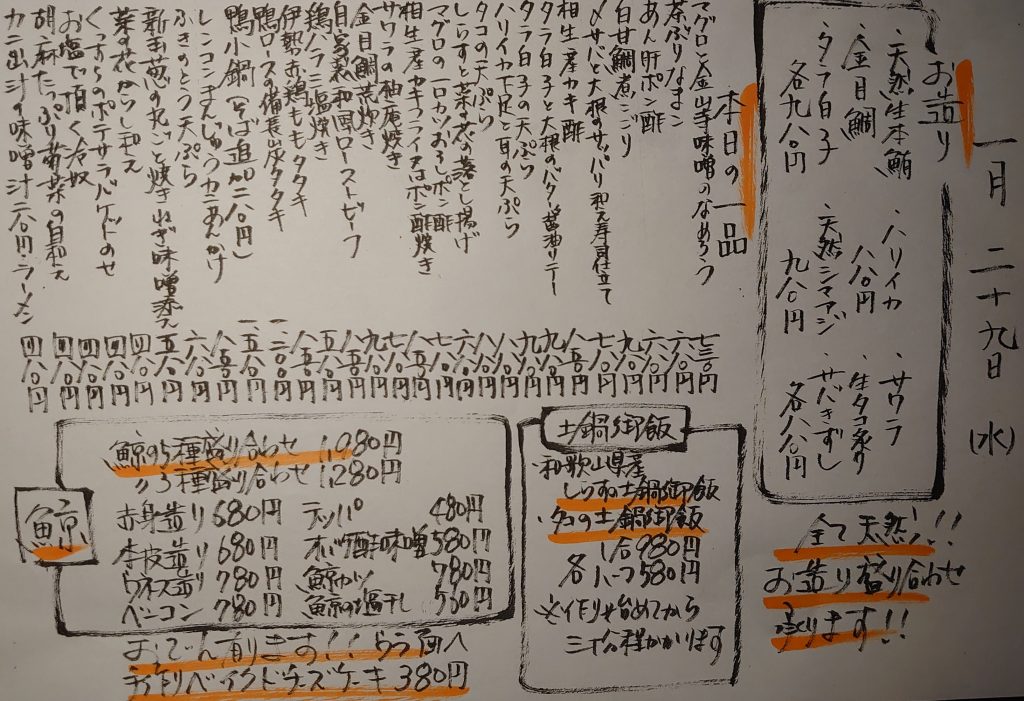 一月二十九日(水)
お造り
・天然生本鮪
・金目鯛
・タラ白子
各九八〇円
・ハリイカ
八八〇円
・天然シマアジ
九八〇円
・サワラ
・生タコ炙り
・サバきずし
各八八〇円
全て天然!!
お造り盛り合わせ
承ります!!
本日の一品
マグロと金山寺味噌のなめろう 七三〇円
茶ぶりなまこ 六八〇円
あん肝ポン酢 六八〇円
白甘鯛煮こごり
〆サバと大根のサッパリ和え寿司仕立て
相生産カキ酢
タラ白子と大根のバター醤油ソテー
タラ白子の天ぷら
ハリイカ下足と耳の天ぷら
タコの天ぷら
しらすと菜の花の落とし揚げ
マグロの一口カツおろしポン酢
相生産カキフライ又はポン酢焼き
サワラの柚庵焼き
金目鯛荒炊き
自家製和風ローストビーフ
鶏ハラミ塩焼き
伊勢赤鶏ももタタキ
鴨ロースの備長炭タタキ
鴨小鍋(そば追加二八〇円)
レンコンまんじゅうカニあんかけ
ふきのとう天ぷら
新玉葱の丸ごと焼きねぎ味噌添え
菜の花からし和え 四八〇円
くっすらのポテサラバケットのせ 四八〇円
お塩で頂く冷奴 四八〇円
胡麻たっぷり菊菜の白和え 四八〇円
カニ出汁の味噌汁二八〇円・ラーメン 四八〇円
土鍋御飯
・和歌山県産
しらすの土鍋御飯
・タコの土鍋御飯
各 1合980円
ハーフ580円
※作り始めてから
三十分程かかります
鯨
鯨の5種盛り合わせ 1,980円
〃3種盛り合わせ 1,280円
赤身造り 680円
本皮造り 680円
ウネス造り 780円
ベーコン 780円
テッパ 480円
オバケ酢味噌 580円
鯨カツ 780円
鯨の塩干し 580円
おでん有ります!!うら面へ
手作りベイクドチーズケーキ380円